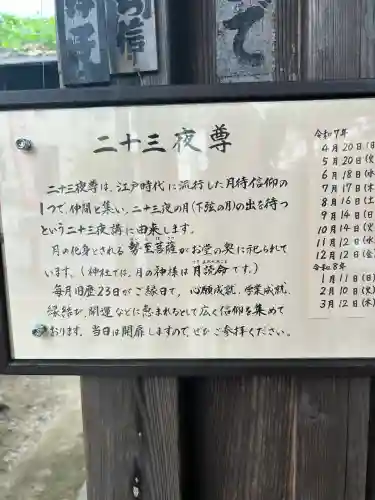 信
で
二十三夜尊
二十三夜尊は、江戸時代に流行した月待信仰の
1つで、仲間と集い、二十三夜の月(下弦の月)の出を待つ
という二十三夜講に由来します。
月の化身とされる勢至菩薩がお堂の奥に祀られて
います。(神社では、月の神様は月読命です。)
毎月旧歴23日がご縁日で、心願成就、学業成就、
縁結び、開運などに恵まれるとして広く信仰を集めて
おります。当日は開扉しますので、ぜひご参拝ください。
令和7年
4月20日(日
5月20日(火
6月18日(水
7月17日(木
8月16日(土
9月14日(日
10月14日(
11月12日(水
12月12日(金
令和8年
1月11日(日)
2月10日(火)
3月12日(木)